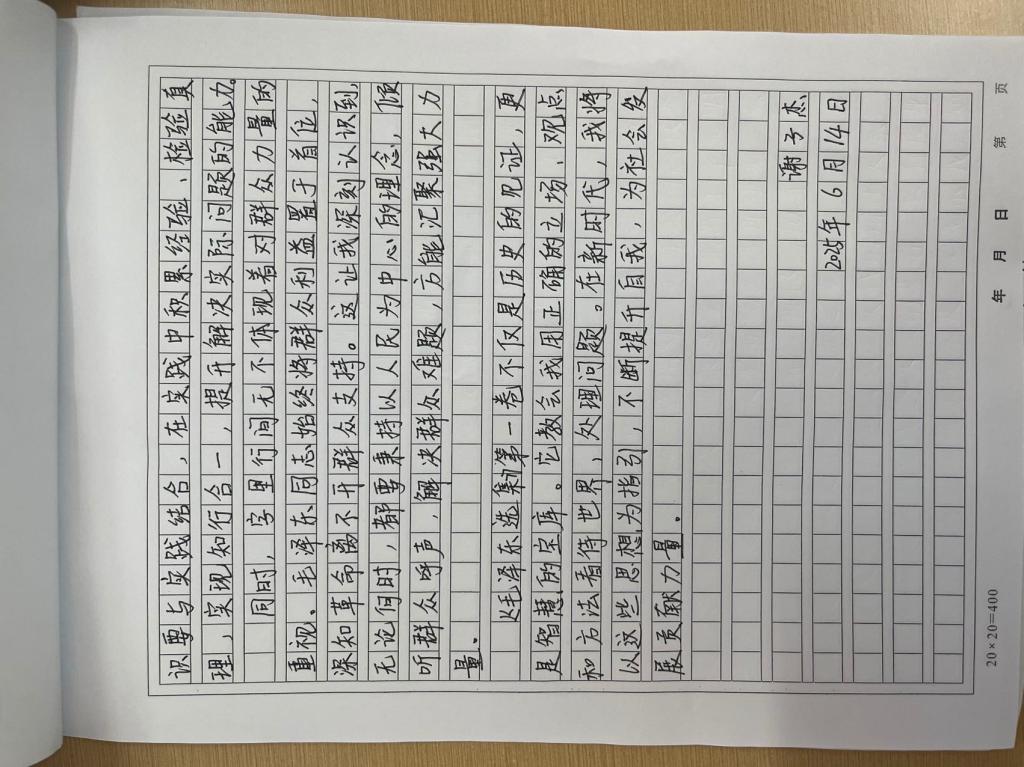 识要与实践结合，在实践中积累经验、检验真
理，实现知行合一，提升解决实际问题的能力。
同时，字里行间无不体现着对群众力量的
重视。毛泽东同志始终将群众利益置于首位，
深知革命离不开群众支持。这让我深刻认识到，
无论何时，都要秉持以人民为中心的理念，倾
听群众呼声，解决群众难题，方能汇聚强大力
量。
《毛泽东选集》第一卷不仅是历史的见证，更
是智慧的宝库。它教会我用正确的立场、观点
和方法看待世界，处理问题。在新时代，我将
以这些思想为指引，不断提升自我，为社会发
展贡献力量。
谢子杰
2025年6月14日
20×20=400 年 月 日 第 页